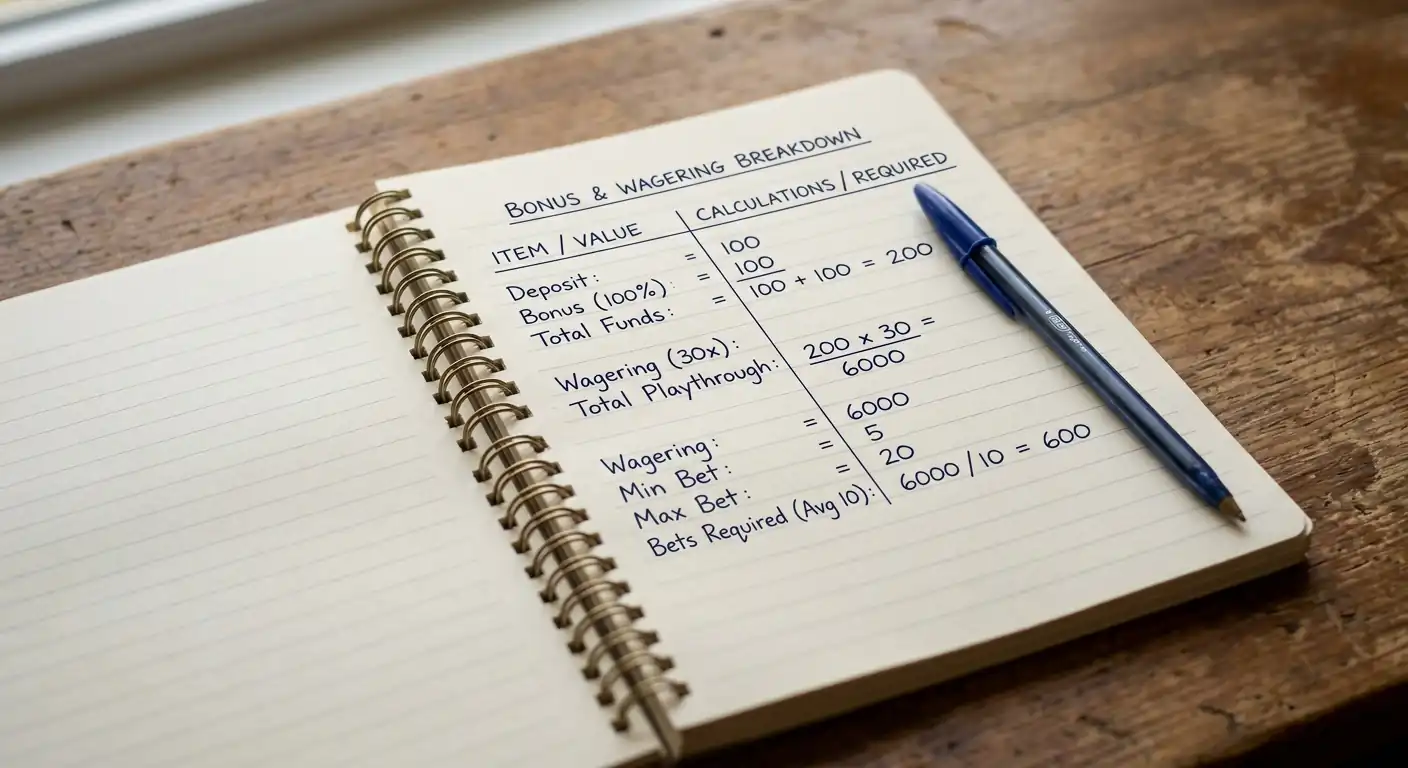 BONUS & WAGERING BREAKDOWN
ITEM / VALUE CALCULATIONS / REQUIRED
Deposit: = 100
Bonus (100%): = 100
Total Funds: = 100 + 100 = 200
Wagering (30x): 200 x 30 =
Total Playthrough: 6000
Wagering: = 6000
Min Bet: = 5
Max Bet: = 20
Bets Required (Avg 10): 6000 / 10 = 600